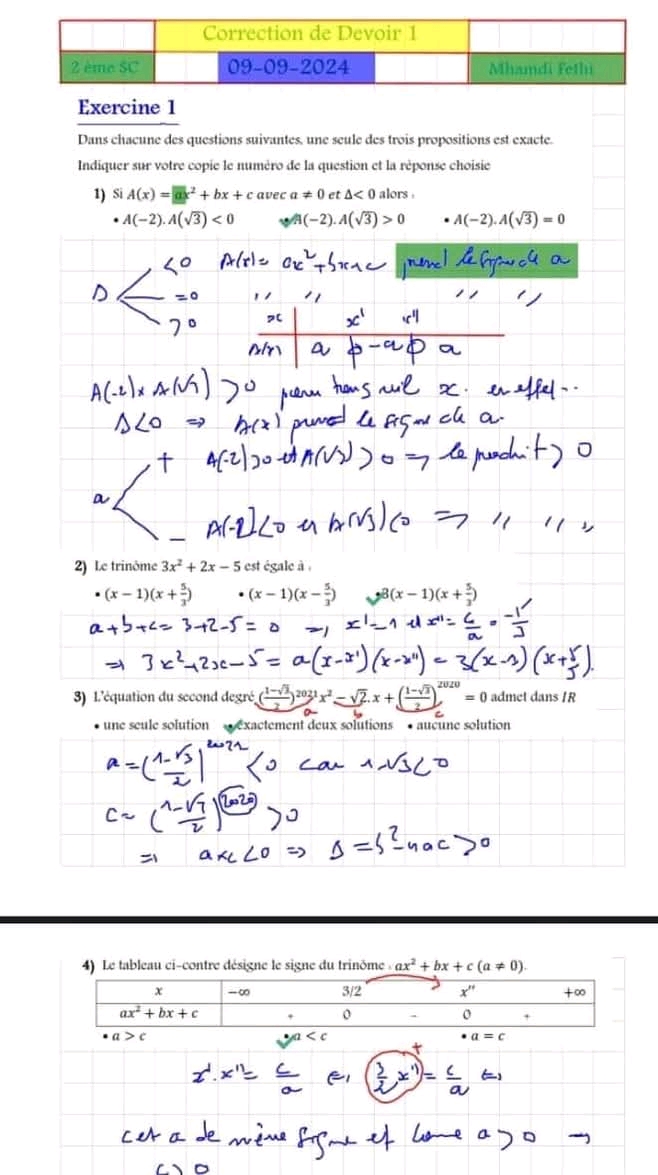 Correction de Devoir 1
2 ème SC 09-09-2024 Mhamdi Fethi
Exercine 1
Dans chacune des questions suivantes, une seule des trois propositions est exacte.
Indiquer sur votre copie le numéro de la question et la réponse choisie
1) Si A(x) = ax² + bx + c avec a ≠ 0 et Δ< 0 alors :
• A(−2). A(√3) < 0 • A(−2). A(√3) > 0 • A(−2). A(√3) = 0
<0 A(x) = ax²+bx+c prend le signe de a
Δ =0 " " " "
>0 x x' x''
A(x) a 0 -a 0 a
A(-2) x A(√3) > 0 en effet..
Δ<0 => A(x) prend le signe de a.
+ A(-2)>0 et A(√3)>0 => le produit > 0
a
- A(-2)<0 et A(√3)<0 => " " "
2) Le trinôme 3x² + 2x − 5 est égale à :
• (x − 1)(x + 5/3) • (x − 1)(x − 5/3) • 3(x − 1)(x + 5/3)
a+b+c= 3+2-5=0 => x'=1 et x''= c/a = -5/3
=> 3x²+2x-5 = a(x-x')(x-x'') = 3(x-1)(x+5/3).
3) L'équation du second degré ((1−√3)/2)²⁰²¹ x² − √2. x + ((1−√3)/2)²⁰²⁰ = 0 admet dans IR
a b c
• une seule solution • exactement deux solutions • aucune solution
a = ((1-√3)/2)²⁰²¹ <0 car 1-√3<0
c = ((1-√3)/2)²⁰²⁰ >0
=> axc<0 => Δ=b²-4ac>0
4) Le tableau ci-contre désigne le signe du trinôme : ax² + bx + c (a ≠ 0).
x −∞ 3/2 x'' +∞
ax² + bx + c + 0 - 0 +
• a > c • a < c • a = c
x'.x''= c/a (3/2 x'')= c/a +
c et a de même signe et comme a>0 =>
c>0